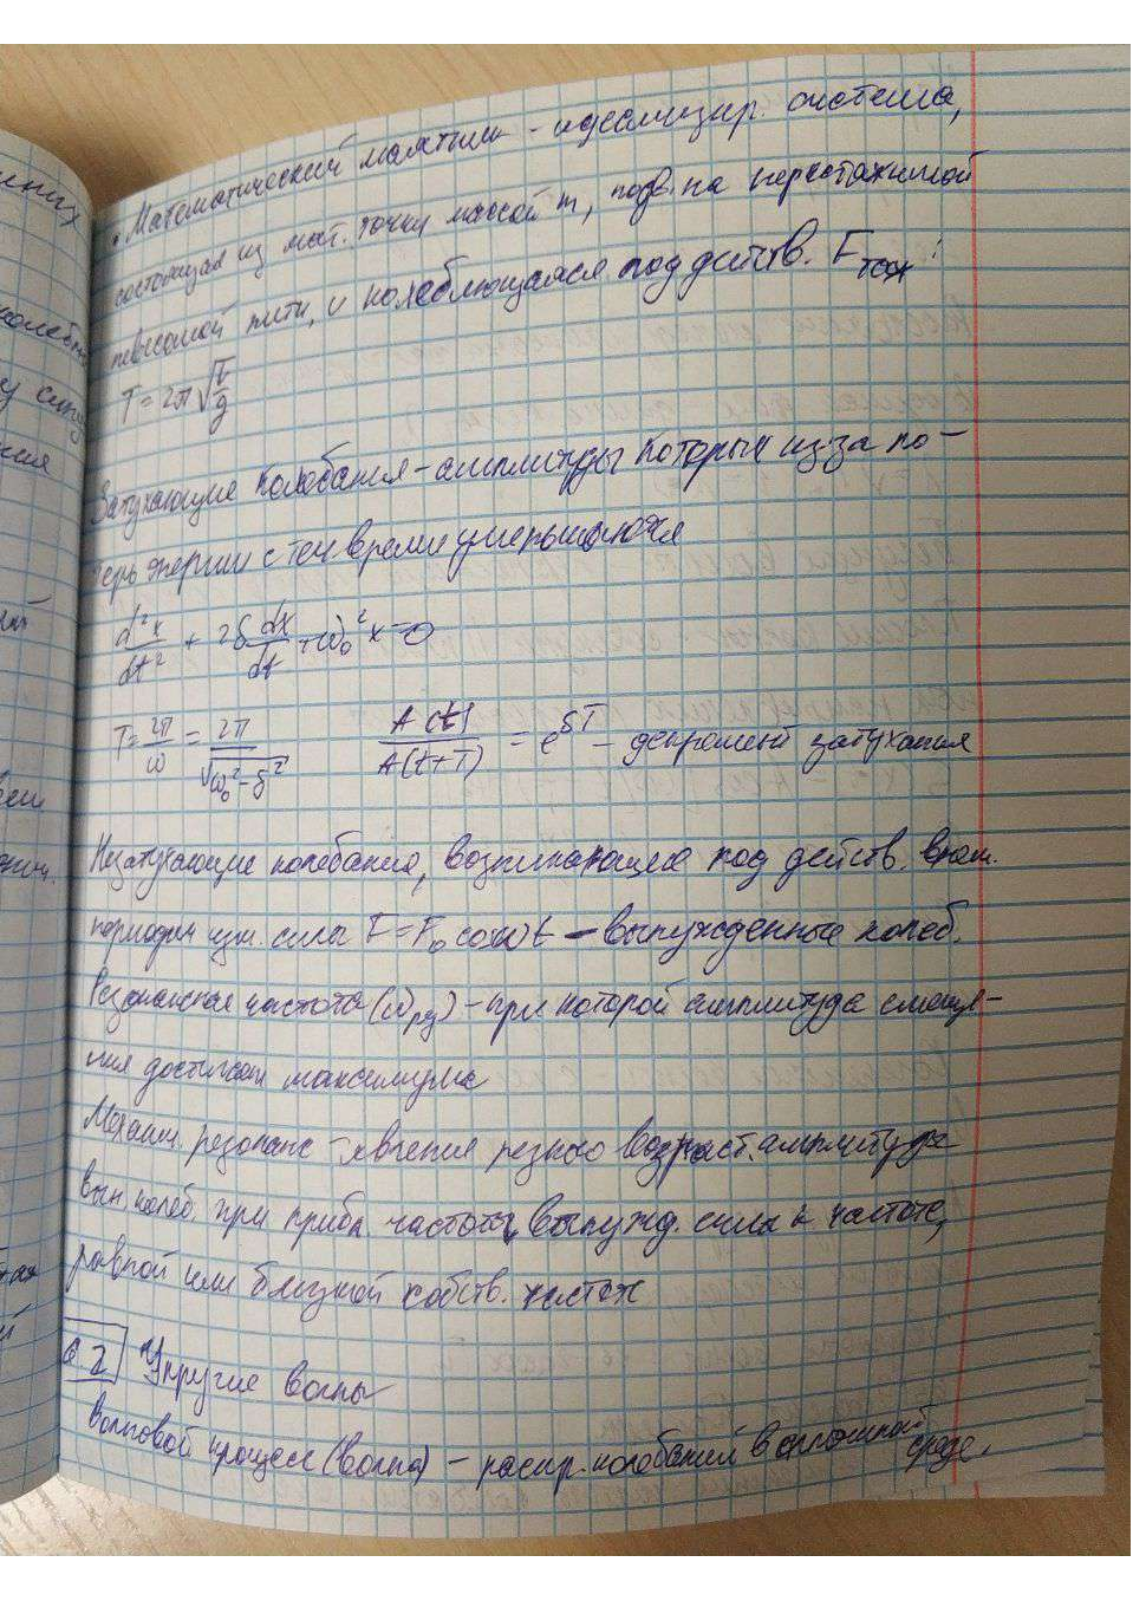 • Математический маятник - идеализир. система,
состоящая из мат. точки массой m, подв. на нерастяжимой
невесомой нити, и колеблющаяся под действ. Fтяж :
T = 2π √(l/g)
Затухающие колебания - амплитуды которых из-за по-
терь энергии с теч времени уменьшаются
d²x/dt² + 2δ dx/dt + ω₀² x = 0
T = 2π/ω = 2π/√(ω₀² - δ²) A(t)/A(t+T) = e^δT - декремент затухания
Незатухающие колебания, возникающие под действ. внеш.
периодич изм. силы F = F₀ cos ωt - вынужденные колеб.
Резонансная частота (ωрез) - при которой амплитуда смеще-
ния достигает максимума
Механич. резонанс - явление резкого возраст. амплитуды
вын. колеб. при прибл. частоты вынужд. силы к частоте,
равной или близкой собств. частоте
§ 2 Упругие волны
Волновой процесс (волна) - распр. колебаний в сплошной среде.